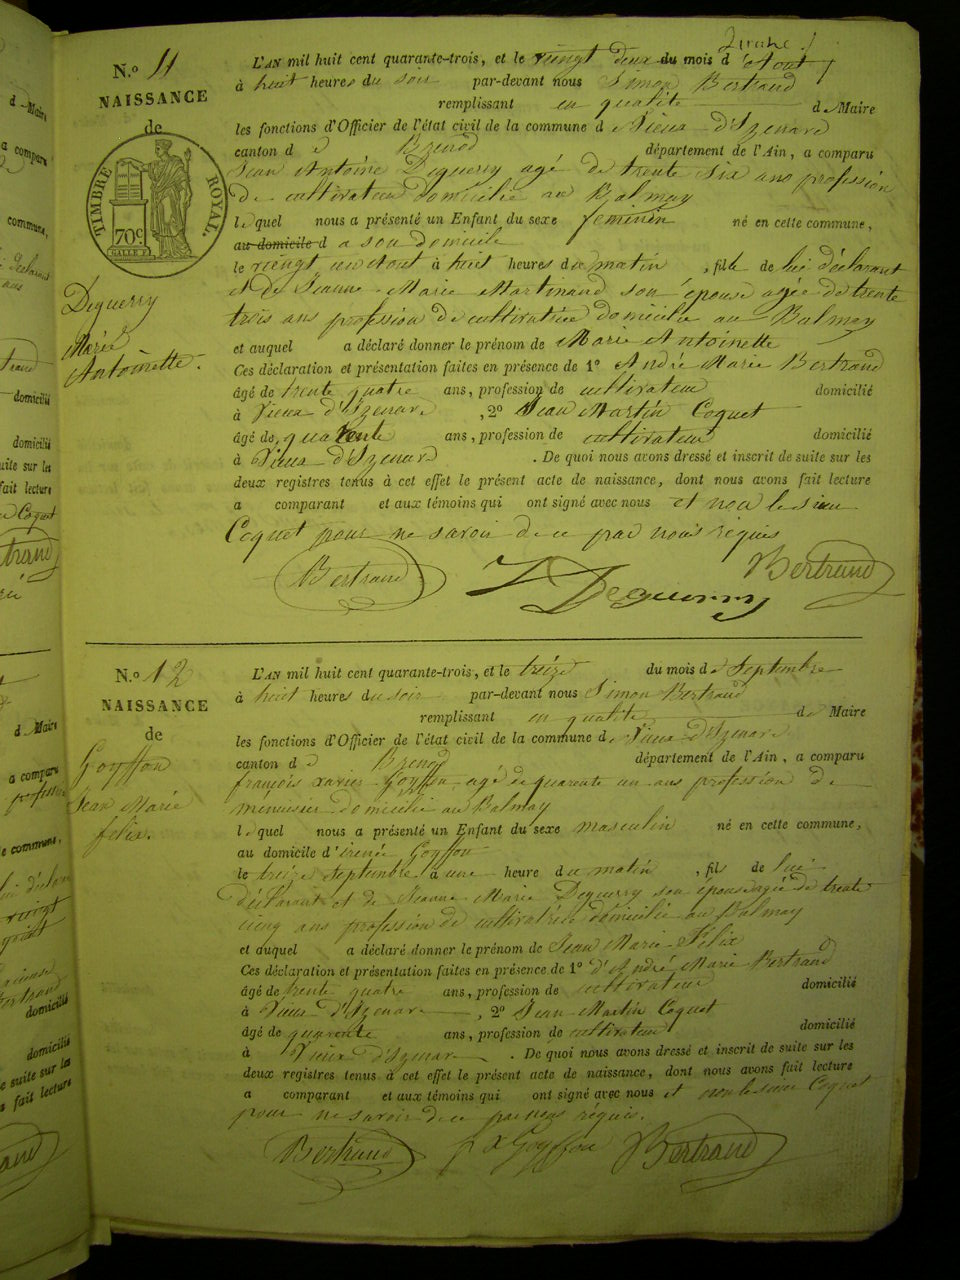 N.º 11
NAISSANCE
de
TIMBRE ROYAL.
70c
Deguerry
Marie
Antoinette.
L'AN mil huit cent quarante-trois, et le vingt deux du mois d'Aout
à huit heures du soir par-devant nous Simon Bertrand
remplissant en qualité de Maire
les fonctions d'Officier de l'état civil de la commune de Vieux-d'Izenave
canton de Brenod département de l'Ain, a comparu
Jean Antoine Deguerry agé de trente six ans profession
de cultivateur domicilié au Balmay
lequel nous a présenté un Enfant du sexe feminin né en cette commune,
au domicile d a son domicile
le vingt un Aout à huit heures du matin, fille de lui déclarant
et de Jeanne Marie Martinand son épouse agée de trente
trois ans profession de cultivatrice domicilie au Balmay
et auquel a déclaré donner le prénom de Marie Antoinette
Ces déclaration et présentation faites en présence de 1º André Marie Bertrand
âgé de trente quatre ans, profession de cultivateur domicilié
à Vieux d'Izenave, 2º Jean Martin Coquet
âgé de quarente ans, profession de cultivateur domicilié
à Vieux d'Izenave. De quoi nous avons dressé et inscrit de suite sur les
deux registres tenus à cet effet le présent acte de naissance, dont nous avons fait lecture
a comparant et aux témoins qui ont signé avec nous et non le sieur
Coquet pour ne savoir de ce par nous réquis
Bertrand Deguerry Bertrand
N.º 12
NAISSANCE
de
Goyffon
Jean Marie
felix.
L'AN mil huit cent quarante-trois, et le treize du mois de Septembre
à huit heures du soir par-devant nous Simon Bertrand
remplissant en qualité de Maire
les fonctions d'Officier de l'état civil de la commune de Vieux-d'Izenave
canton de Brenod département de l'Ain, a comparu
françois xavier Goyffon agé de quarante un ans profession de
menuisier domicilié au Balmay
lequel nous a présenté un Enfant du sexe masculin né en cette commune,
au domicile d'irenée Goyffon
le treize Septembre à une heure du matin, fils de lui
déclarant et de Jeanne Marie Deguerry son épouse agée de trente
cinq ans profession de cultivatrice domicilie au Balmay
et auquel a déclaré donner le prénom de Jean Marie Félix
Ces déclaration et présentation faites en présence de 1º d'André Marie Bertrand
âgé de trente quatre ans, profession de cultivateur domicilié
à Vieux-d'Izenave, 2º Jean Martin Coquet
âgé de quarente ans, profession de cultivateur domicilié
à Vieux d'Izenave. De quoi nous avons dressé et inscrit de suite sur les
deux registres tenus à cet effet le présent acte de naissance, dont nous avons fait lecture
a comparant et aux témoins qui ont signé avec nous et non le sieur Coquet
pour ne savoir de ce par nous réquis.
Bertrand f x Goyffon Bertrand